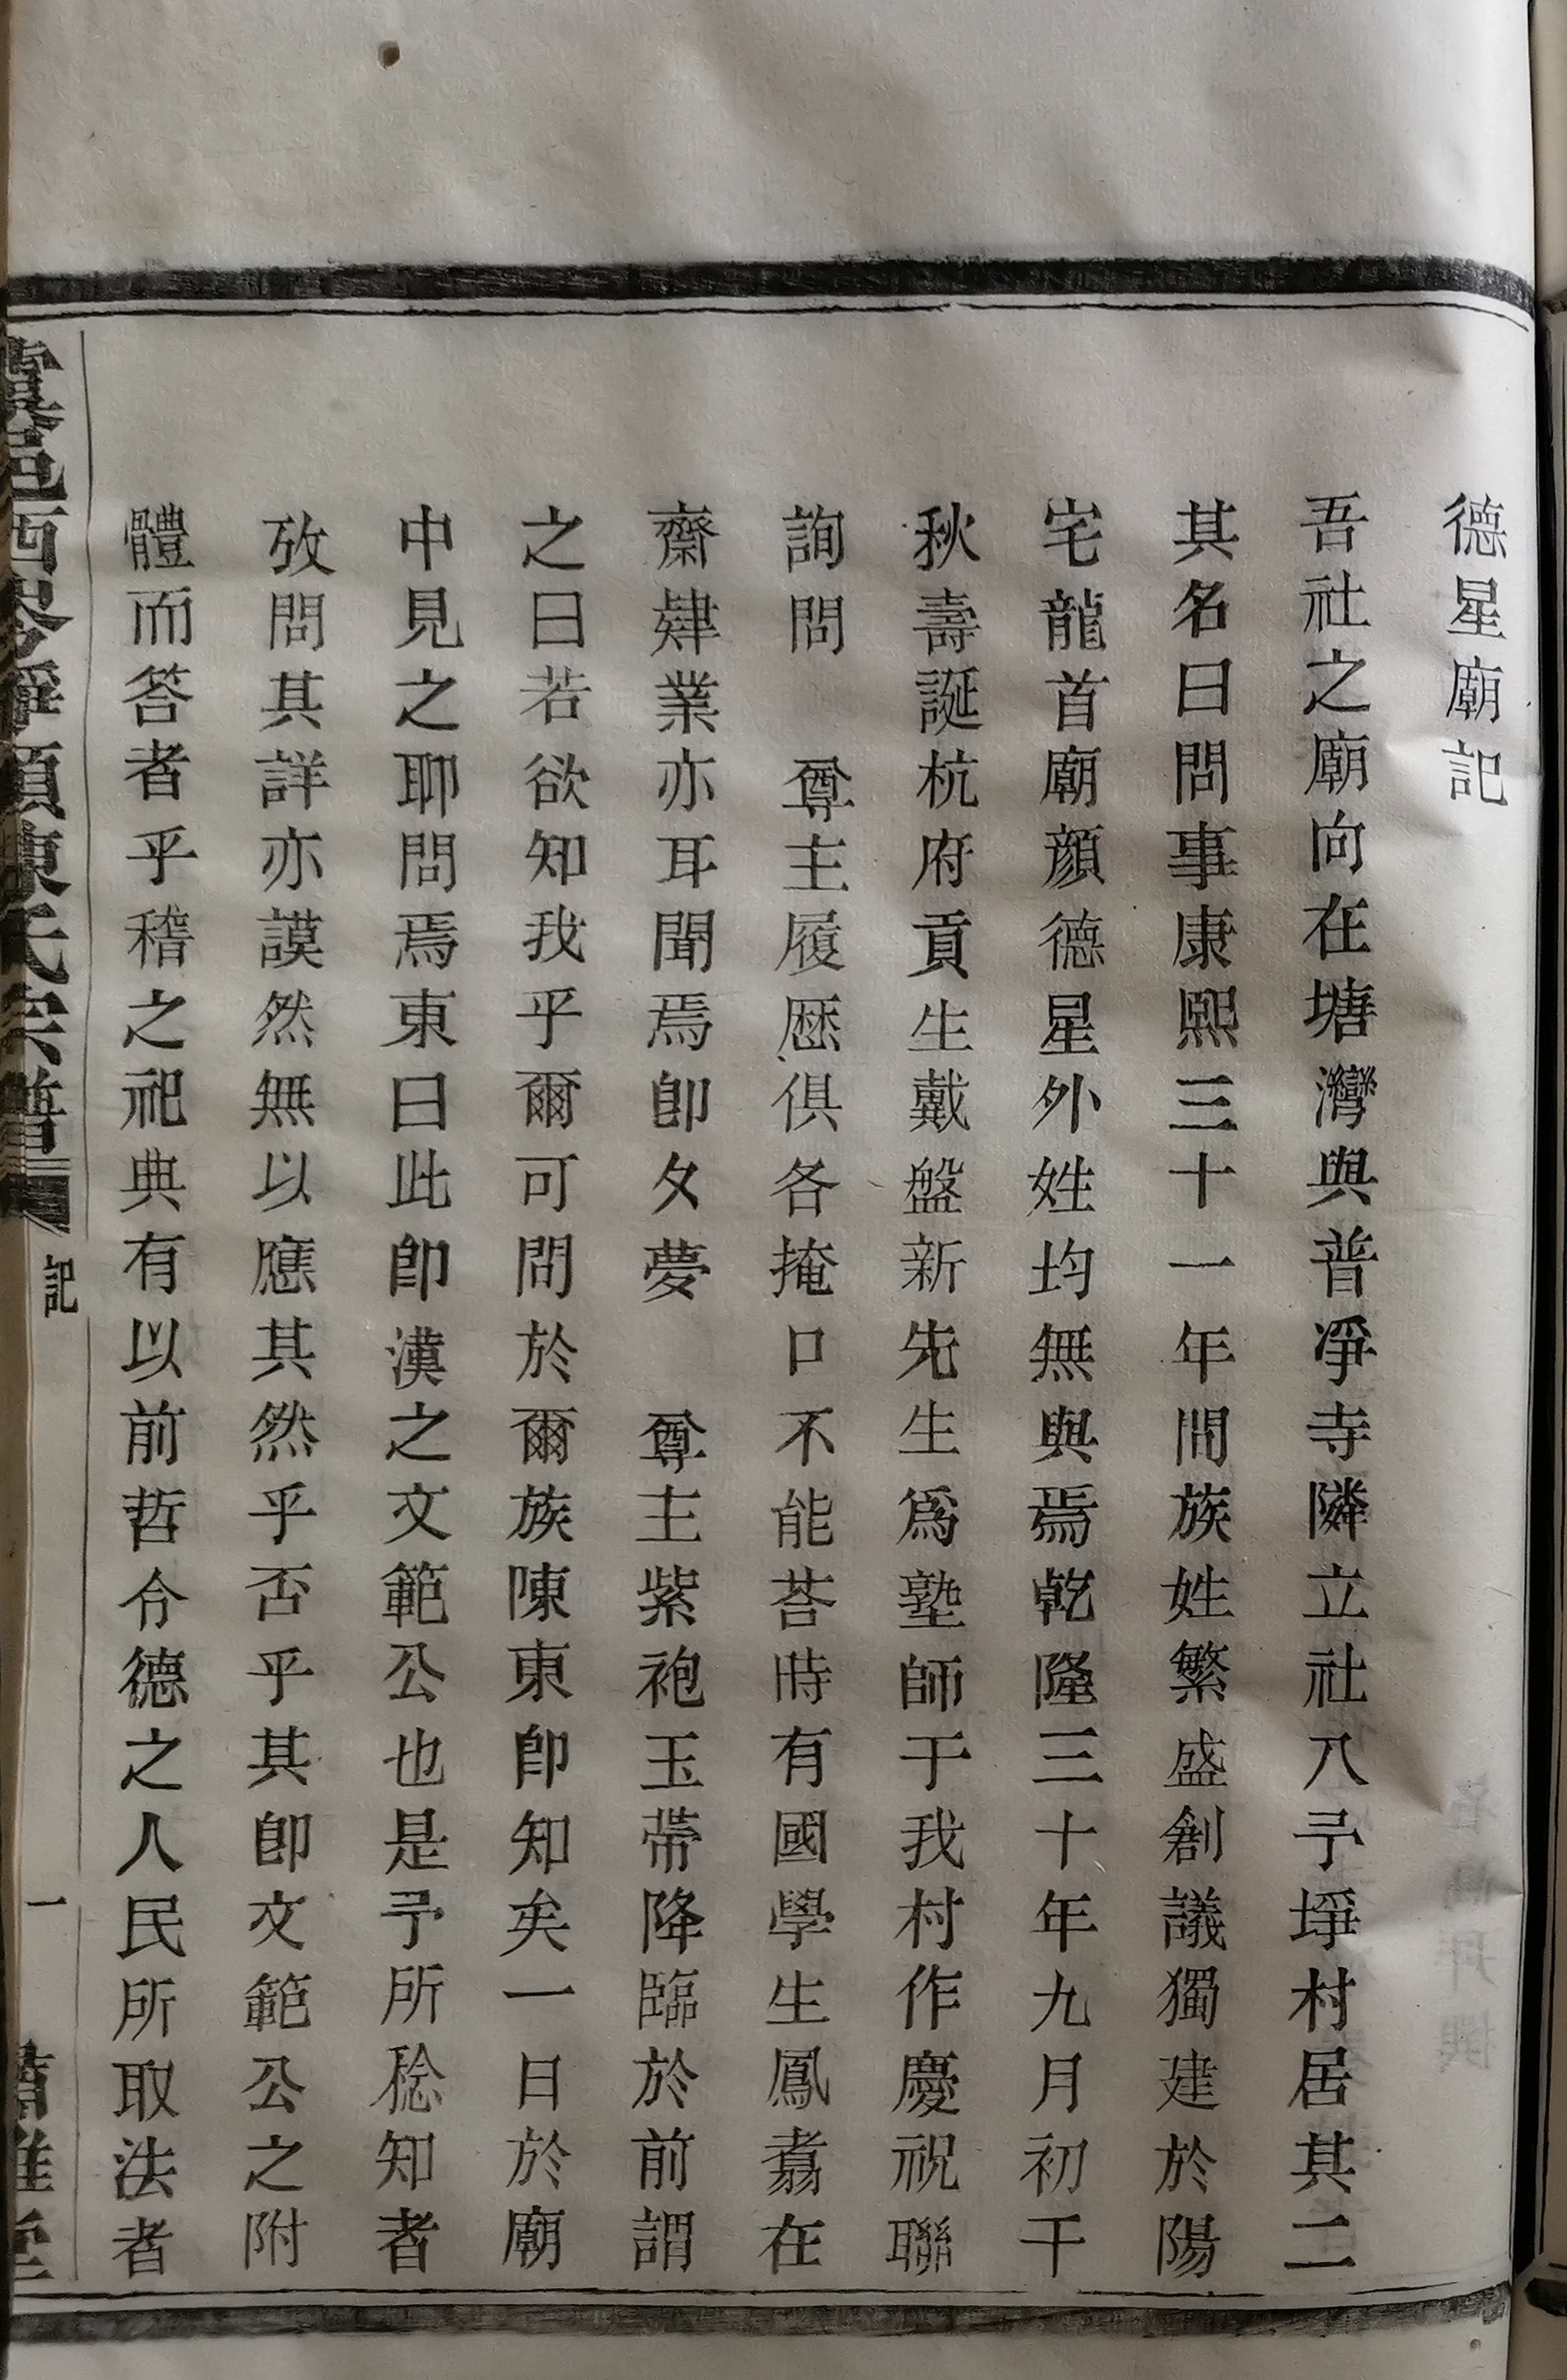 德星廟記
吾社之廟向在塘灣與普凈寺隣立社八予埩村居其二
其名曰問事康熙三十一年間族姓繁盛創議獨建於陽
宅龍首廟顔德星外姓均無與焉乾隆三十年九月初干
秋壽誕杭府貢生戴盤新先生爲塾師于我村作慶祝聯
詢問　尊主履歷俱各掩口不能荅時有國學生鳳翥在
齋肄業亦耳聞焉卽夕夢　尊主紫袍玉帶降臨於前謂
之曰若欲知我乎爾可問於爾族陳東卽知矣一日於廟
中見之聊問焉東曰此卽漢之文範公也是予所稔知者
攷問其詳亦謨然無以應其然乎否乎其卽文範公之附
體而答者乎稽之祀典有以前哲令德之人民所取法者
邑西 埩頭陳氏宗譜
記
一